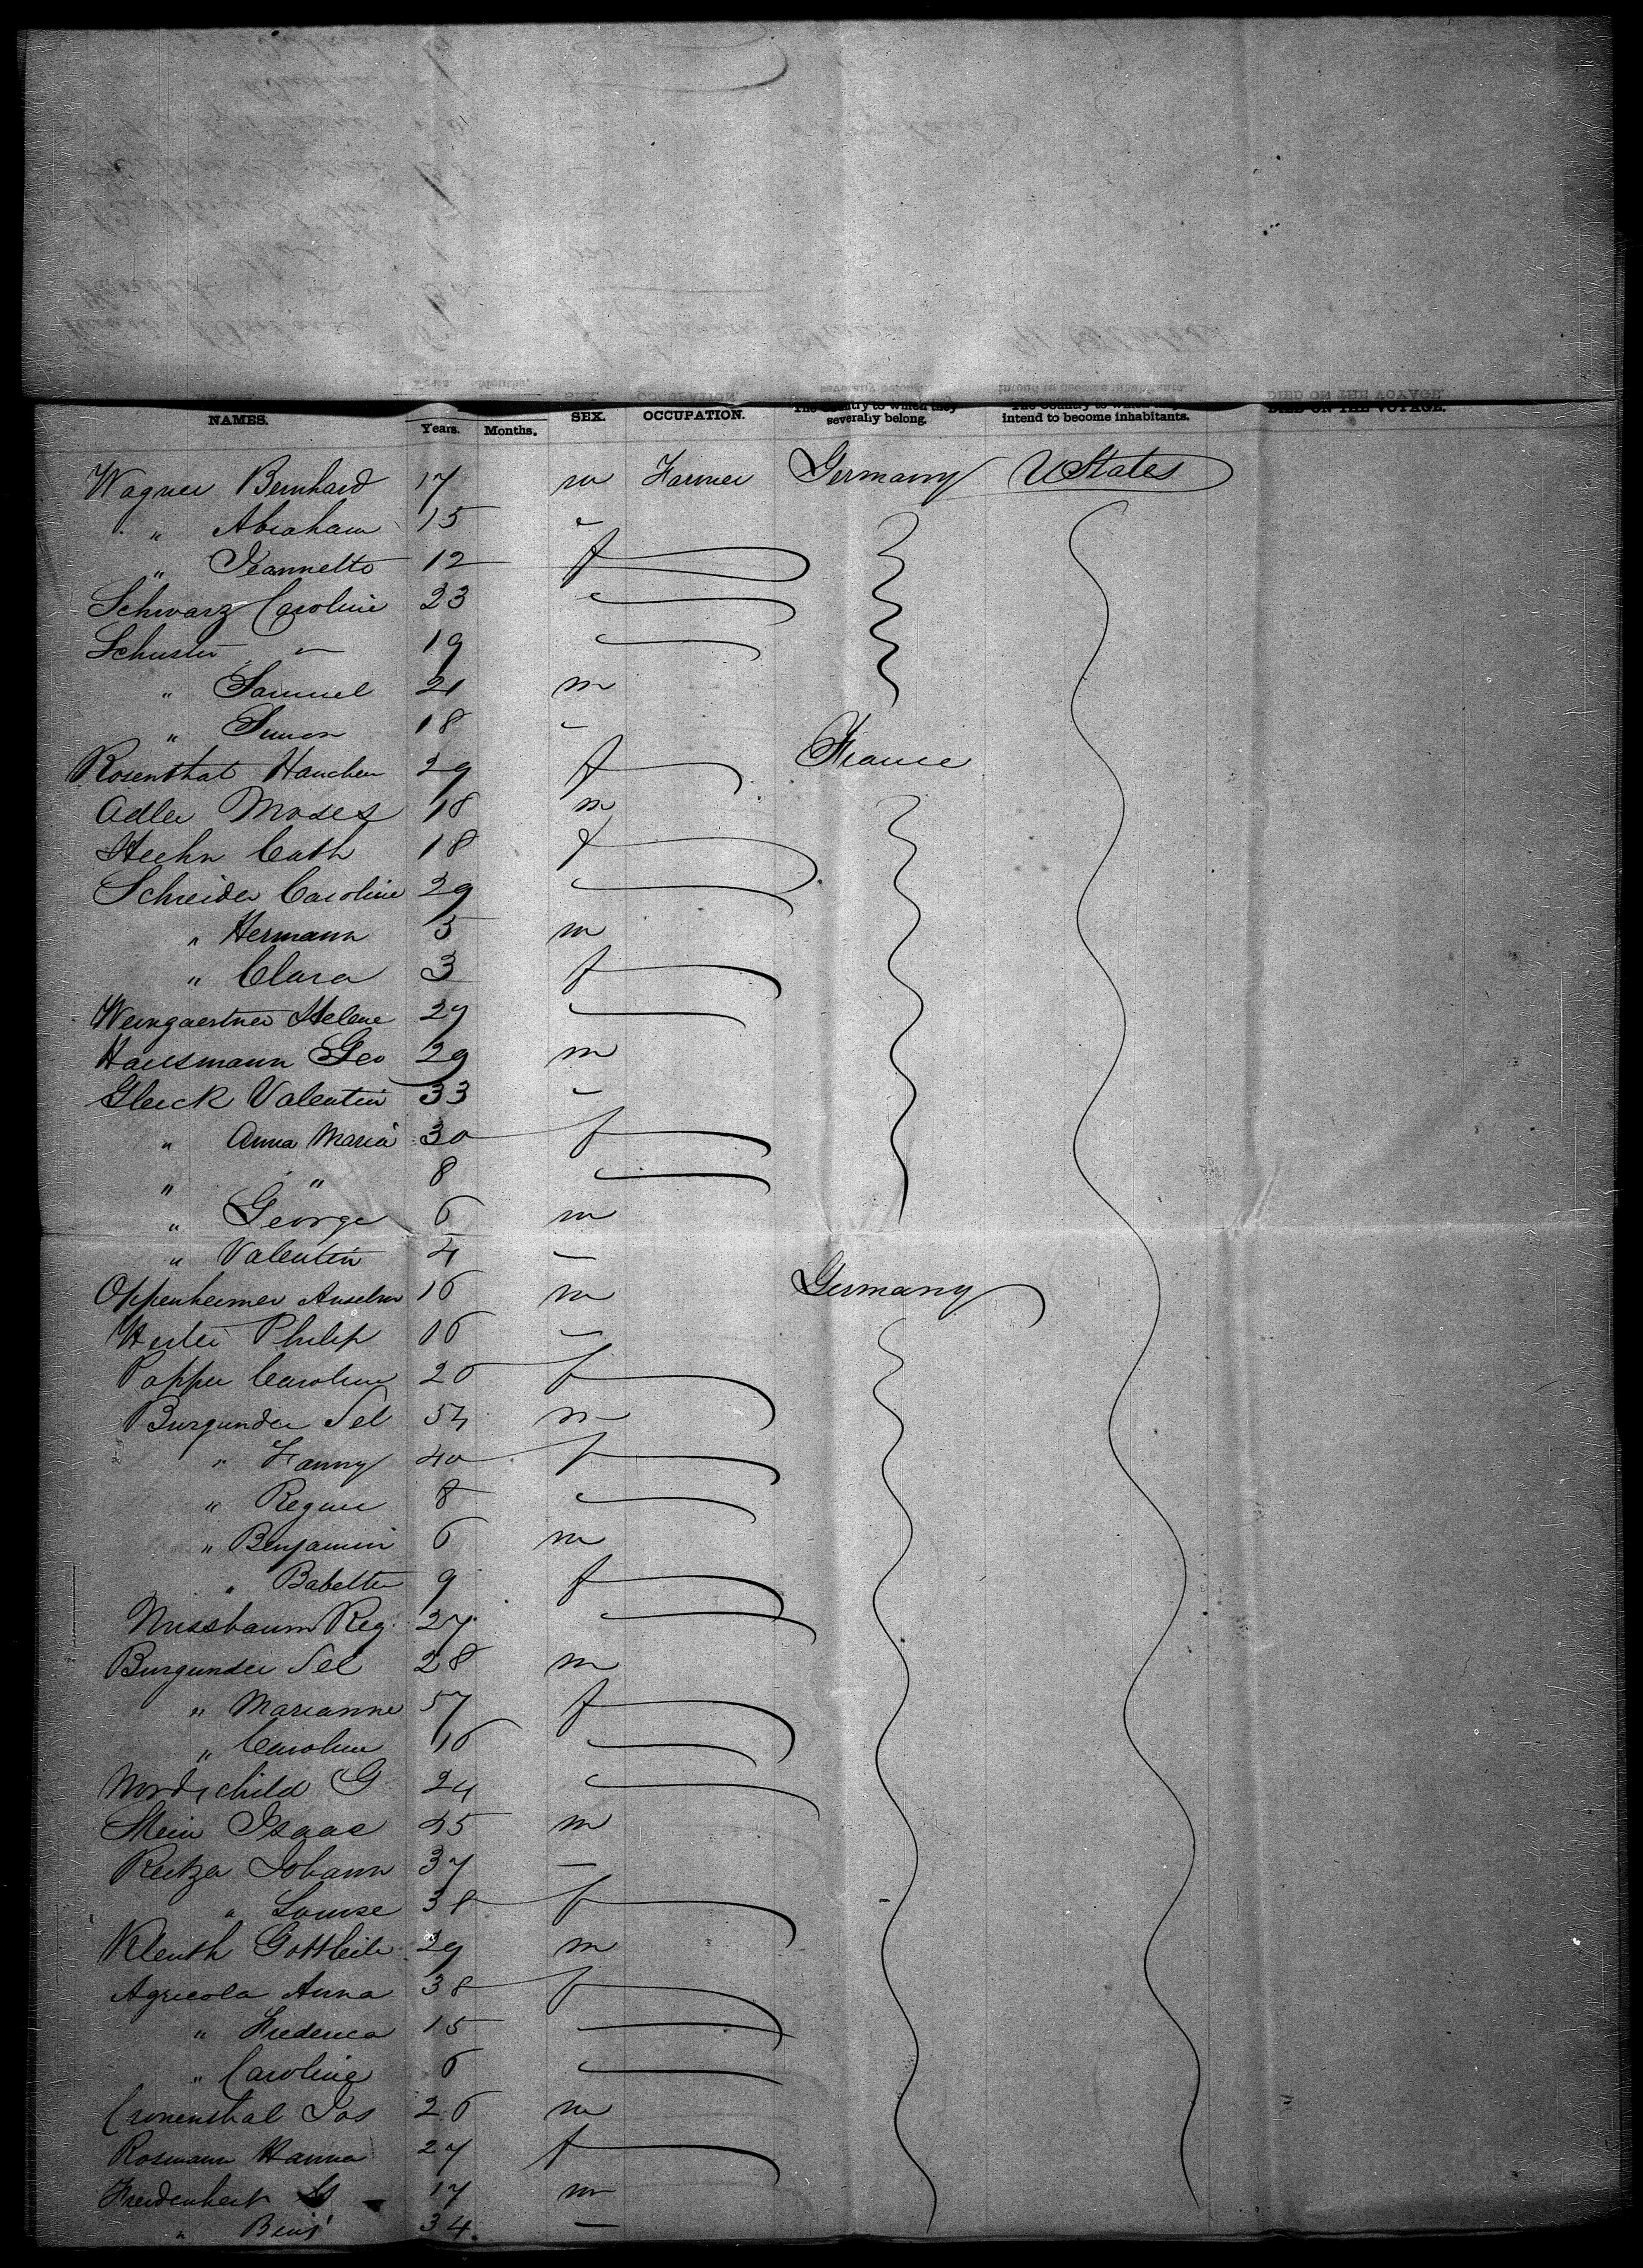 NAMES. Years. Months. SEX. OCCUPATION. The Country to which they severally belong. intend to become inhabitants. DIED ON THE VOYAGE.
Wagner Bernhard 17 m Farmer Germany UStates
" Abraham 15 "
" Jeannette 12 f
Schwarz Caroline 23
Schuster " 19
" Samuel 21 m
" Simon 18 "
Rosenthal Hanchen 29 f France
Adler Moses 18 m
Hechn Cath 18 f
Schreider Caroline 29
" Hermann 5 m
" Clara 3 f
Weingaertner Helene 27
Hausmann Geo 29 m
Gleick Valentin 33 "
" Anna Maria 30 f
" " 8
" George 6 m
" Valentin 4 "
Oppenheimer Anselm 16 m Germany
Philip 16 "
Popper Caroline 20 f
Burgunder Sel 54 m
" Fanny 40 f
" Regine 8
" Benjamin 6 m
" Babette 9 f
Nussbaum Reg. 27
Burgunder Sel 28 m
" Marianne 57 f
" Caroline 16
Nordschild G 24
Stein Isaac 45 m
Reitze Johann 37 "
" Louise 38 f
Klenth Gottleib 29 m
Agricola Anna 38 f
" Frederica 15
" Caroline 6
Cronenthal Jos 26 m
Rosmann Hanna 27 f
17 m
" Benj 34 "